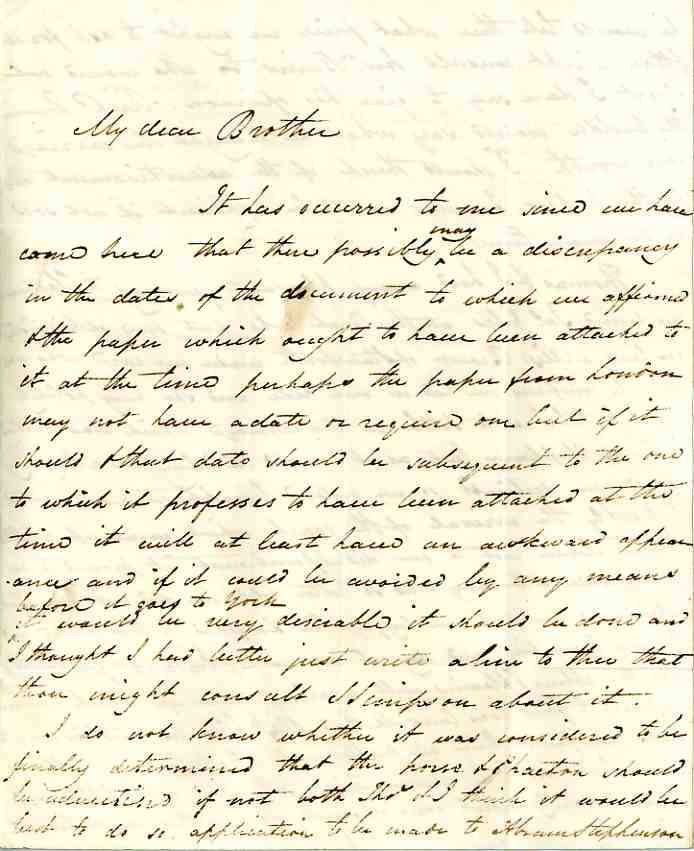 My dear Brother
It has occurred to me since we have
came here that there possibly may be a discrepancy
in the dates of the document to which we affirmed
& the paper which ought to have been attached to
it at the time perhaps the paper from London
may not have a date or require one but if it
should & that date should be subsequent to the one
to which it professes to have been attached at the
time it will at least have an awkward appear
ance and if it could be avoided by any means
before it goes to York
it would be very desirable it should be done and
I thought I had better just write a line to thee that
thou might consult J Simpson about it.
I do not know whether it was considered to be
finally determined that the horse & Phaeton should
be advertised if not both Thos & I think it would be
best to do so application to be made to Abram Stephenson